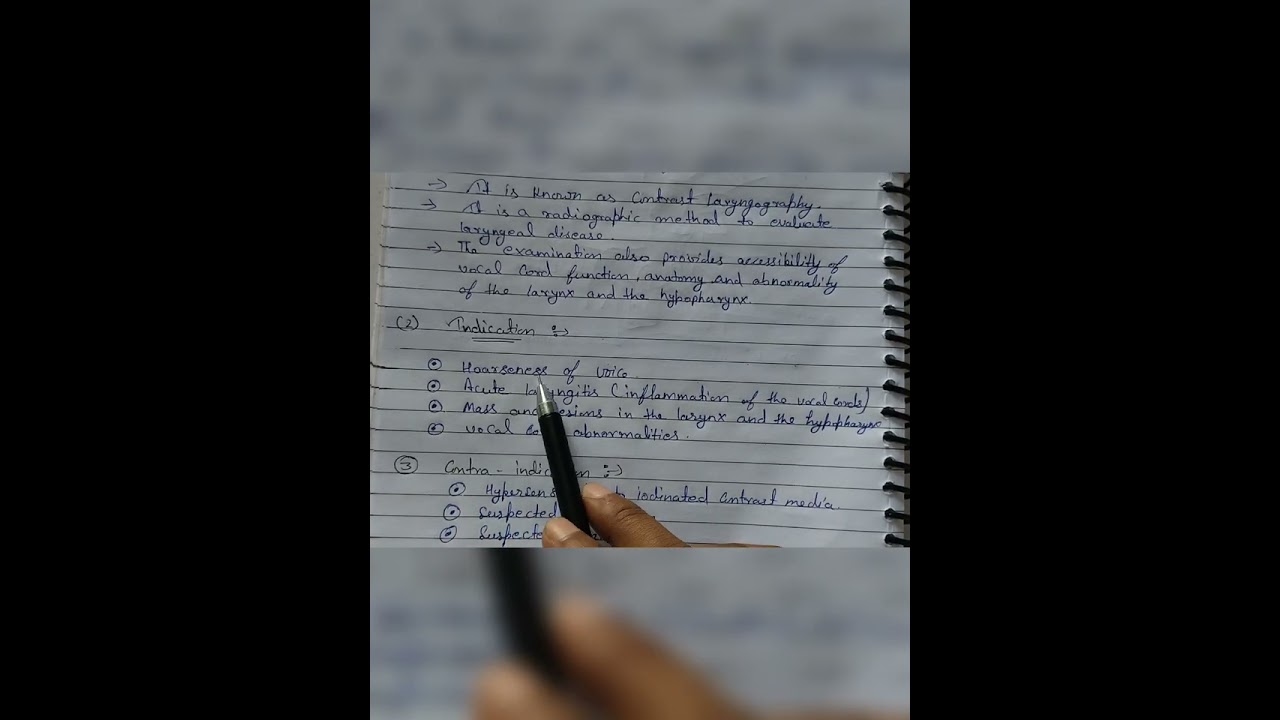 → It is known as contrast laryngography.
→ It is a radiographic method to evaluate
laryngeal disease.
→ The examination also provides accessibility of
vocal cord function, anatomy and abnormality
of the larynx and the hypopharynx.
(2) Indication :→
⊙ Hoarseness of voice.
⊙ Acute laryngitis (inflammation of the vocal cords)
⊙ Mass and lesions in the larynx and the hypopharynx
⊙ vocal abnormalities.
③ Contra-indication :→
⊙ to iodinated contrast media.
⊙ Suspected
⊙ Suspected